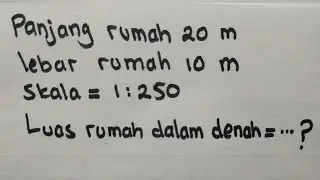 Panjang rumah 20 m
lebar rumah 10 m
Skala = 1 : 250
Luas rumah dalam denah = ... ?